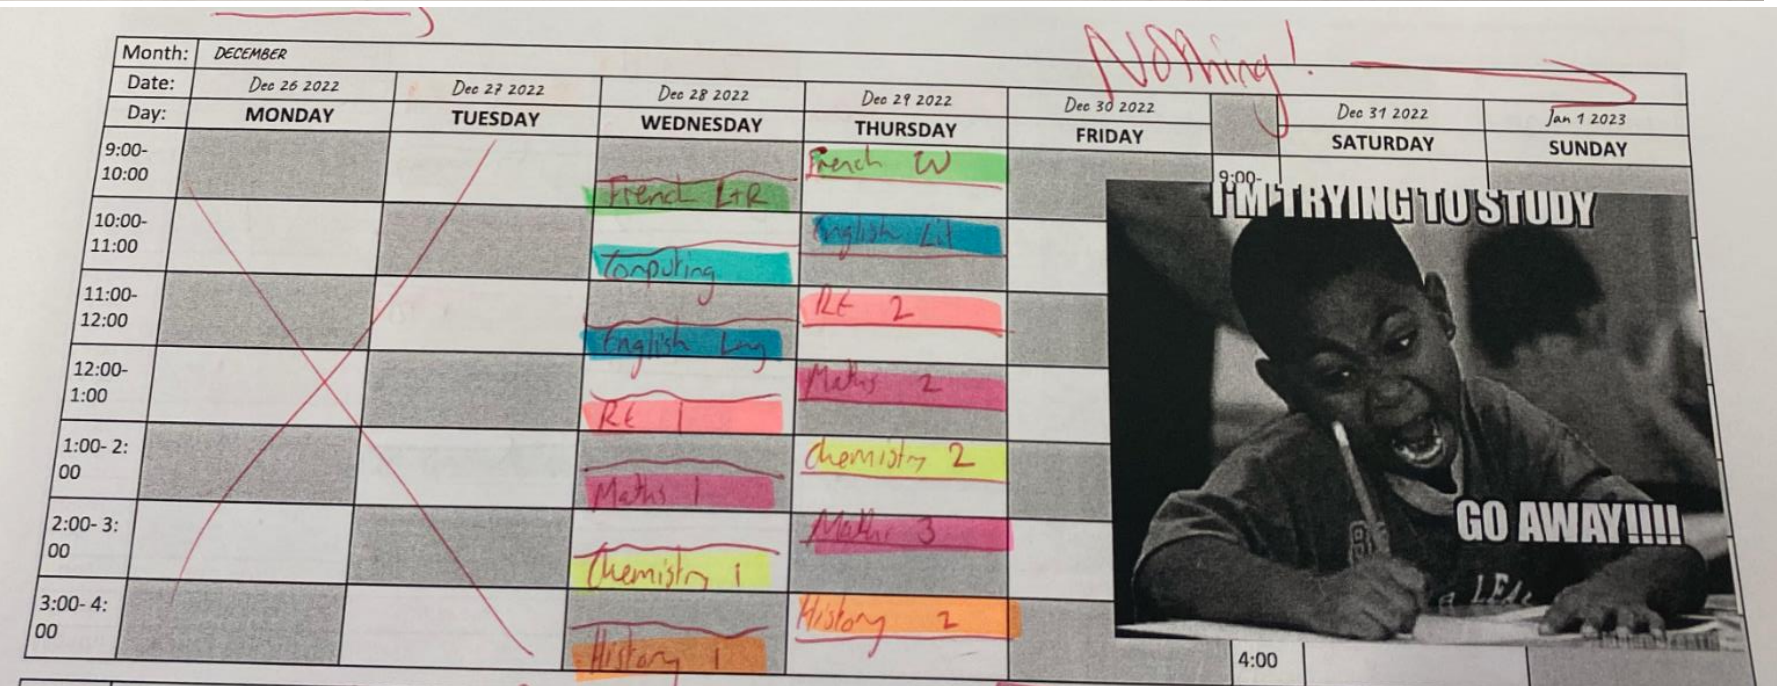 Nothing!
Month: DECEMBER
Date: Dec 26 2022 Dec 27 2022 Dec 28 2022 Dec 29 2022 Dec 30 2022 Dec 31 2022 Jan 1 2023
Day: MONDAY TUESDAY WEDNESDAY THURSDAY FRIDAY SATURDAY SUNDAY
9:00-
10:00
French L+R
French W
9:00-
10:00-
11:00
Computing
English Lit
11:00-
12:00
English Lng
RE 2
12:00-
1:00
RE 1
Maths 2
1:00- 2:
00
Maths 1
Chemistry 2
2:00- 3:
00
Chemistry 1
Maths 3
3:00- 4:
00
History 1
History 2
4:00
I'M TRYING TO STUDY
GO AWAY!!!!